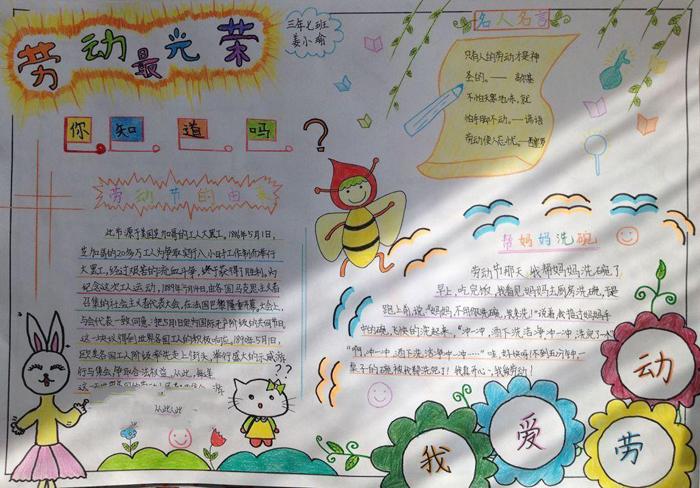 劳动最光荣
三年七班
姜小瑜
你知道吗
?
劳动节的由来
此节源于美国芝加哥的工人大罢工,1886年5月1日,
芝加哥的20多万工人为争取实行八小时工作制而举行
大罢工,经过艰苦的流血斗争,终于获得了胜利。为
纪念这次工人运动,1889年7月14日,由各国马克思主义者
召集的社会主义者代表大会,在法国巴黎隆重开幕。大会上,
与会代表一致同意:把5月1日定为国际无产阶级的共同节日。
这一决议得到世界各国工人的积极响应。1890年5月1日,
欧美各国工人阶级率先走上街头,举行盛大的示威游
行与集会,争取合法权益。从此,每逢
从此
??
名人名言
只有人的劳动才是神
圣的。——高尔基
不怕天寒地冻,就
怕手脚不动。——谚语
劳动使人忘忧。——西塞罗
帮妈妈洗碗
劳动节那天,我帮妈妈洗碗了
早上,吃完饭,我看见妈妈去厨房洗碗,连
跑上前说:“妈妈,不用你来洗,我来洗!”说着
中的碗,飞快的洗起来,“冲一冲,洒下洗洁净,冲一冲,洗完了一个
“啊,冲一冲,洒下洗洁净,冲一冲……”哇,越快吗!不到五六分钟,一
桌子的碗被我帮洗完了!我真开心,我劳动!
我爱劳动